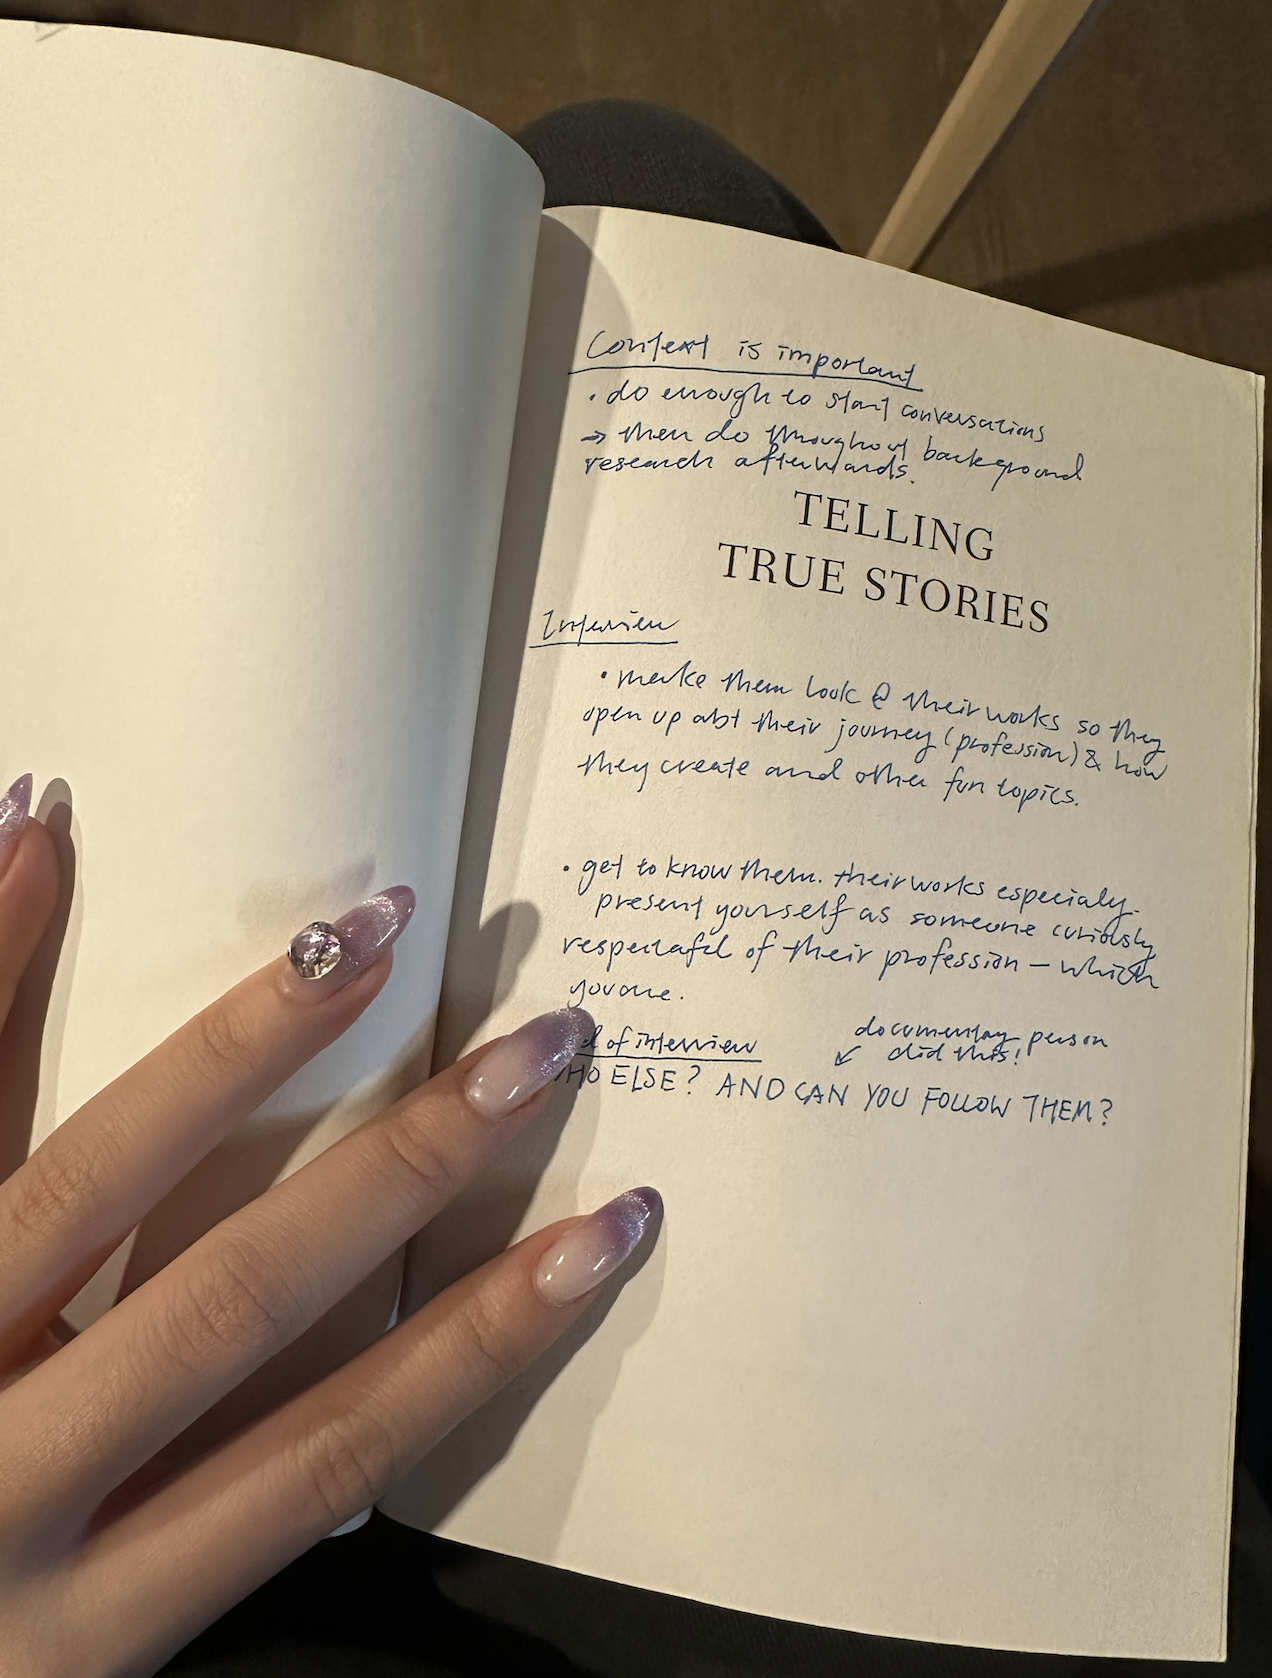 Context is important
• do enough to start conversations
→ then do throughout background
research afterwards.
TELLING
TRUE STORIES
Interview
• make them look @ their works so they
open up abt their journey (profession) & how
they create and other fun topics.
• get to know them. their works especialy.
present yourself as someone curiously
respectaful of their profession – which
you are.
d of interview
documentary person
↙ did this!
HO ELSE? AND CAN YOU FOLLOW THEM?